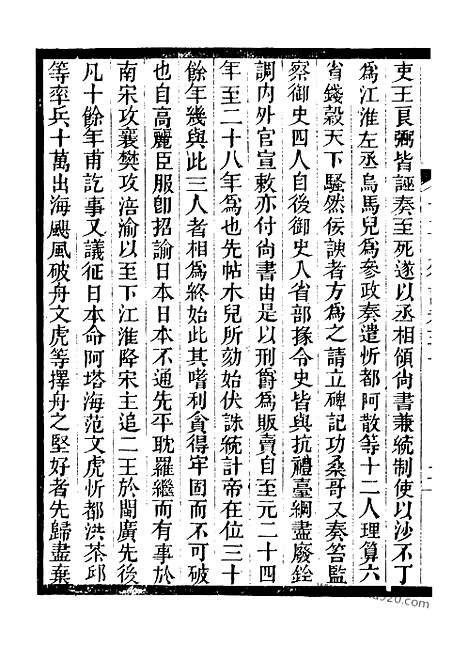 吏王良弼皆誣奏至死遂以丞相領尚書兼統制使以沙不丁
爲江淮左丞烏馬兒爲參政奏遣忻都阿散等十二人理算六
省錢穀天下騷然佞諛者方爲之請立碑記功桑哥又奏笞監
察御史四人自後御史入省部掾令史皆與抗禮臺綱盡廢銓
調內外官宣敕亦付尚書由是以刑爵爲販賣自至元二十四
年至二十八年爲也先帖木兒所劾始伏誅統計帝在位三十
餘年幾與此三人者相爲終始此其嗜利貪得牢固而不可破
也自高麗臣服卽招諭日本日本不通先平耽羅繼而有事於
南宋攻襄樊攻涪渝以至下江淮降宋主追二王於閩廣先後
凡十餘年甫訖事又議征日本命阿塔海范文虎忻都洪茶邱
等率兵十萬出海颶風破舟文虎等擇舟之堅好者先歸盡棄